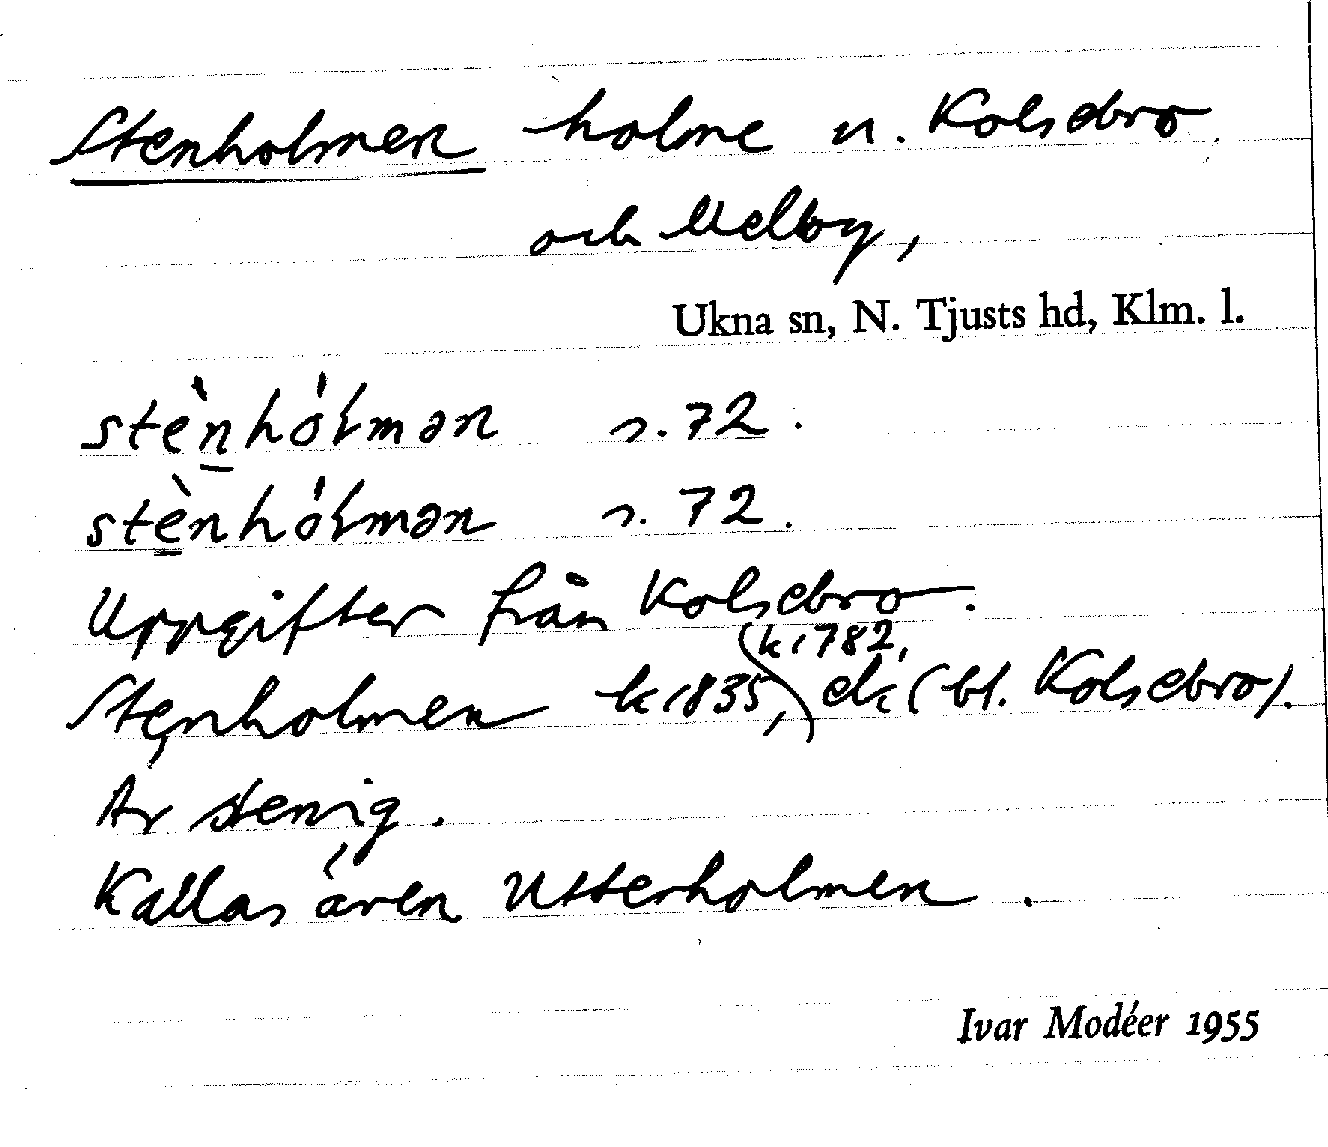 Stenholmen holme u. Kolsebro
och Melby,
Ukna sn, N. Tjusts hd, Klm. l.
stènhólmən s. 72.
stènhólmən s. 72.
Uppgifter från Kolsebro.
k 1782,
Stenholmen k 1835, ek (bl. Kolsebro).
Är stenig.
Kallas även Utterholmen.
Ivar Modéer 1955